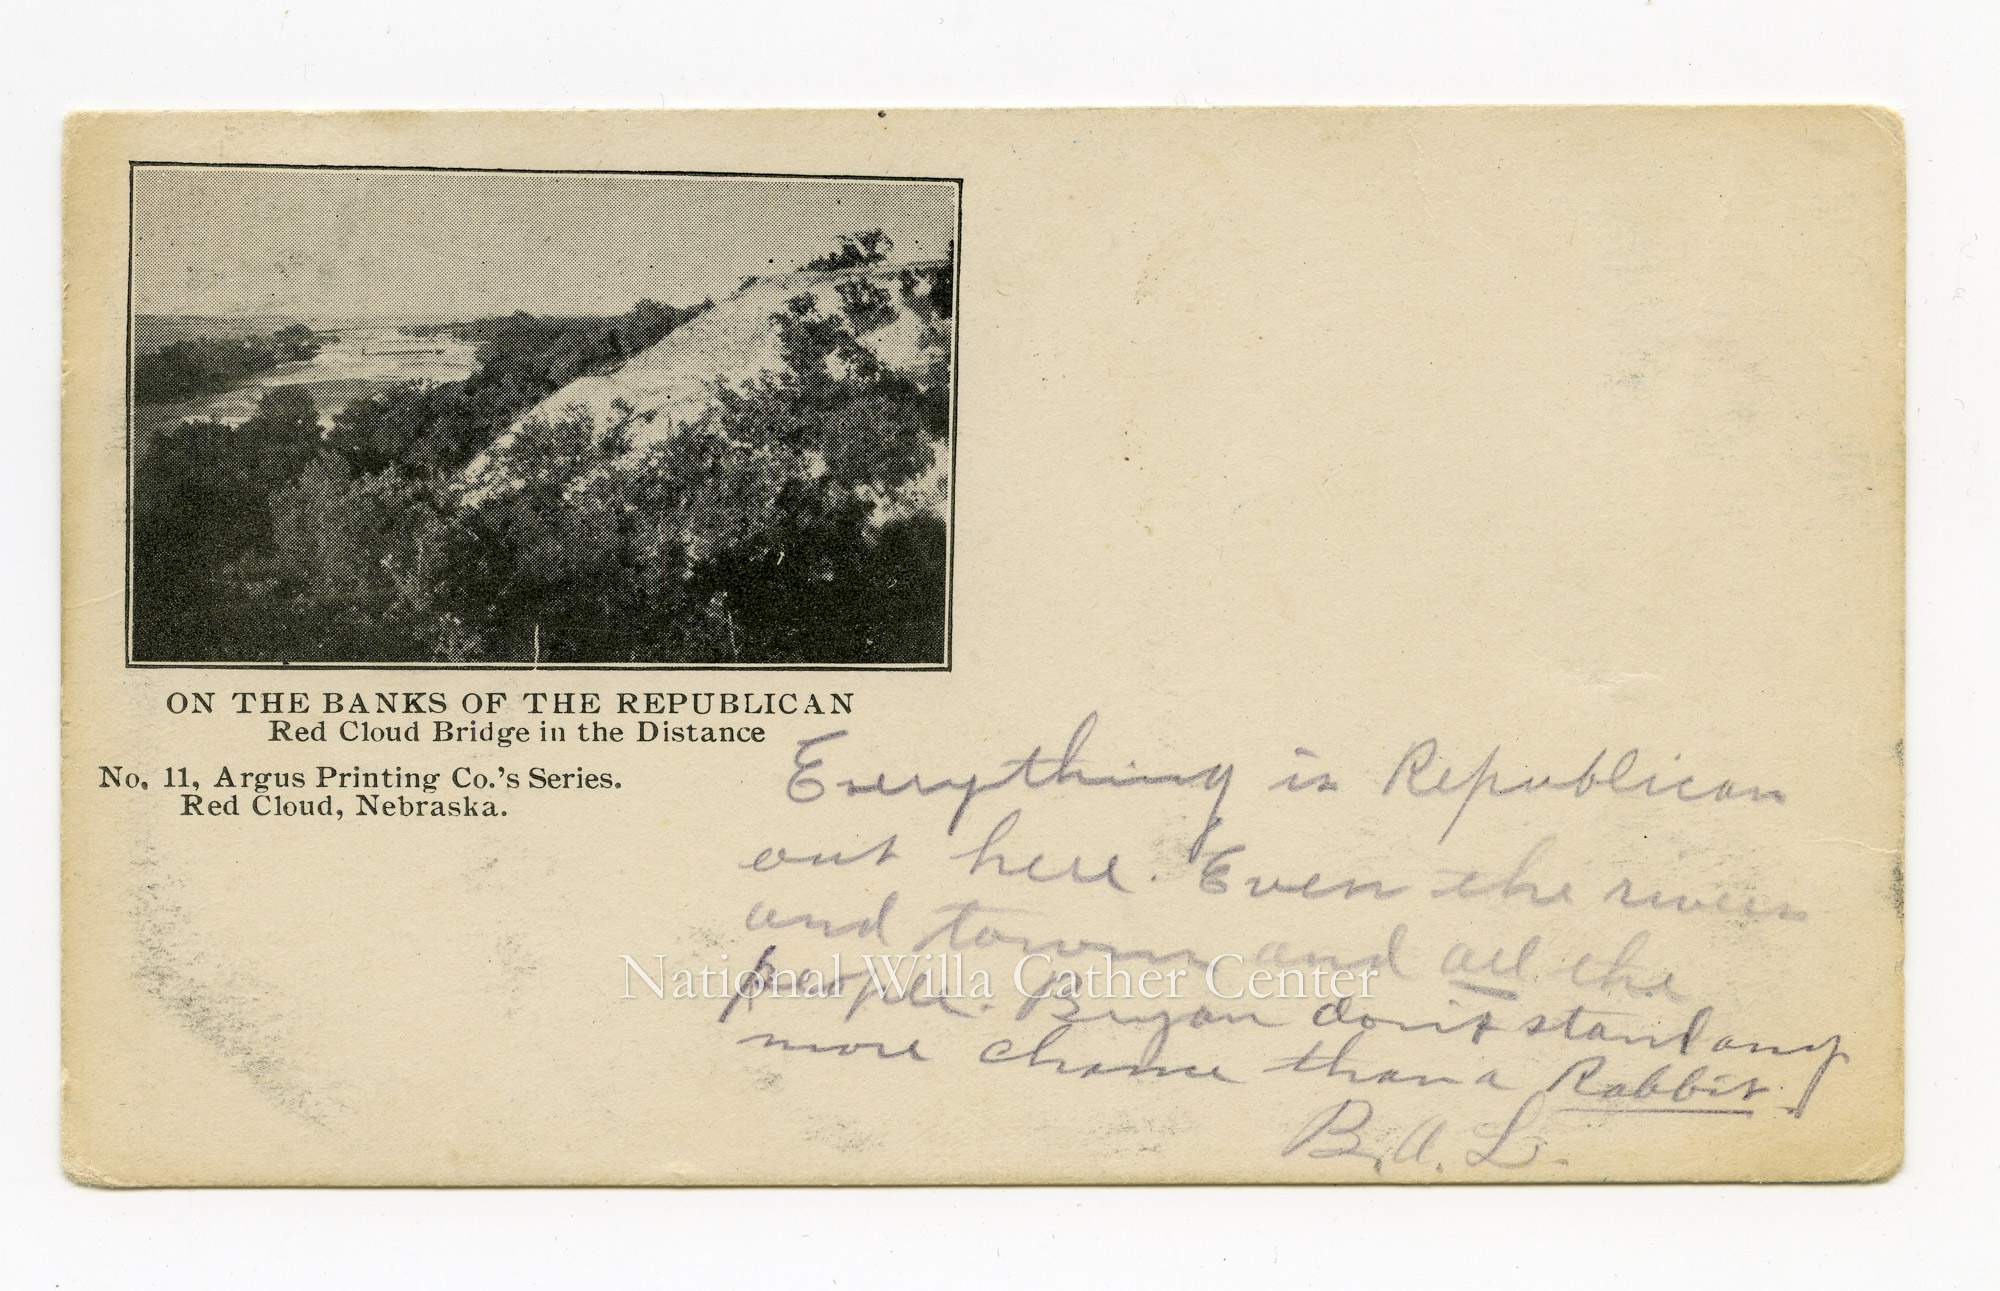 ON THE BANKS OF THE REPUBLICAN
Red Cloud Bridge in the Distance
No. 11, Argus Printing Co.'s Series.
Red Cloud, Nebraska.
Everything is Republican
out here. Even the rivers
and towns and all the
people. Bryan don't stand any
more chance than a Rabbit.
B.A.L.
National Willa Cather Center